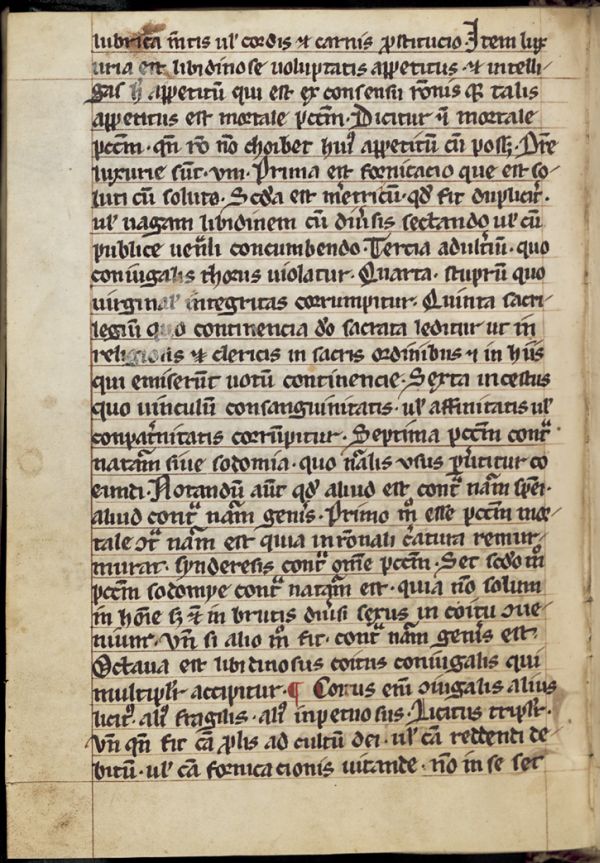 lubrica mẽtis ul' cordis ⁊ carnis p̃stitucio. Item lux
uria est libidinose uoluptatis appetitus. ⁊ intelli
gas h̃ appetitũ qui est ex consensu rõnis q̃ talis
appetitus est mortale pccm̃. Dicitur q̃ mortale
pccm̃. qñ rõ nõ choibet huiꝰ appetitũ cũ possꝫ. Dr̃e
luxurie sũt. viii. Prima est fornicacio que est so
luti cũ soluta. Scd̃a est m̃etricũ. qd̃ fit duplicit̃.
ul' uagam libidinem cũ diũsis sectando ul' cũ
publice uen̾li concumbendo. Tercia adult̾iũ. quo
coniugalis thorus violatur. Quarta. stuprũ quo
virginal' integritas corrumpitur. Quinta sacri
legiũ quo continencia do̾ sacrata leditur ut in
religiosis ⁊ clericis in sacris ordinibus ⁊ in hiis
qui emiserũt uotũ continencie. Sexta incestus
quo uinculũ consanguinitatis. ul' affinitatis ul'
conpat̾nitatis corrũpitur. Septima pccm̃ cont̃
natãm siue sodomia. quo nãlis vsus p̾utitur co
eundi. Notandũ aũt qd̃ aliud est cont̃ nãm sp̃ei.
aliud cont̃ nãm gen̾is. Primo m̊ esse pccm̃ mor
tale ↄt̃ nãm est quia in rõnali c̾atura remur
murat. synderesis cont̃ om̃e pccm̃. Set scd̃o m̊
pccm̃ sodomye cont̃ natãm est. quia nõ solum
in hõie sꝫ ⁊ in brutis diũsi sexus in coitu ↄue
niunt. vñ si alio m̊ fit. cont̃ nãm gen̾is est.
Octaua est libidinosus coitus coniugalis qui
multiplr̃ accipitur. ¶ Coitus em̃ ↄiugalis alius
licitꝰ. aliꝰ fragilis. aliꝰ inpetuosus. Licitus triplr̃.
vñ qñ fit cã p̃lis ad cultũ dei. ul' cã reddendi de
bitũ. ul' cã fornicacionis uitande. nõ in se set